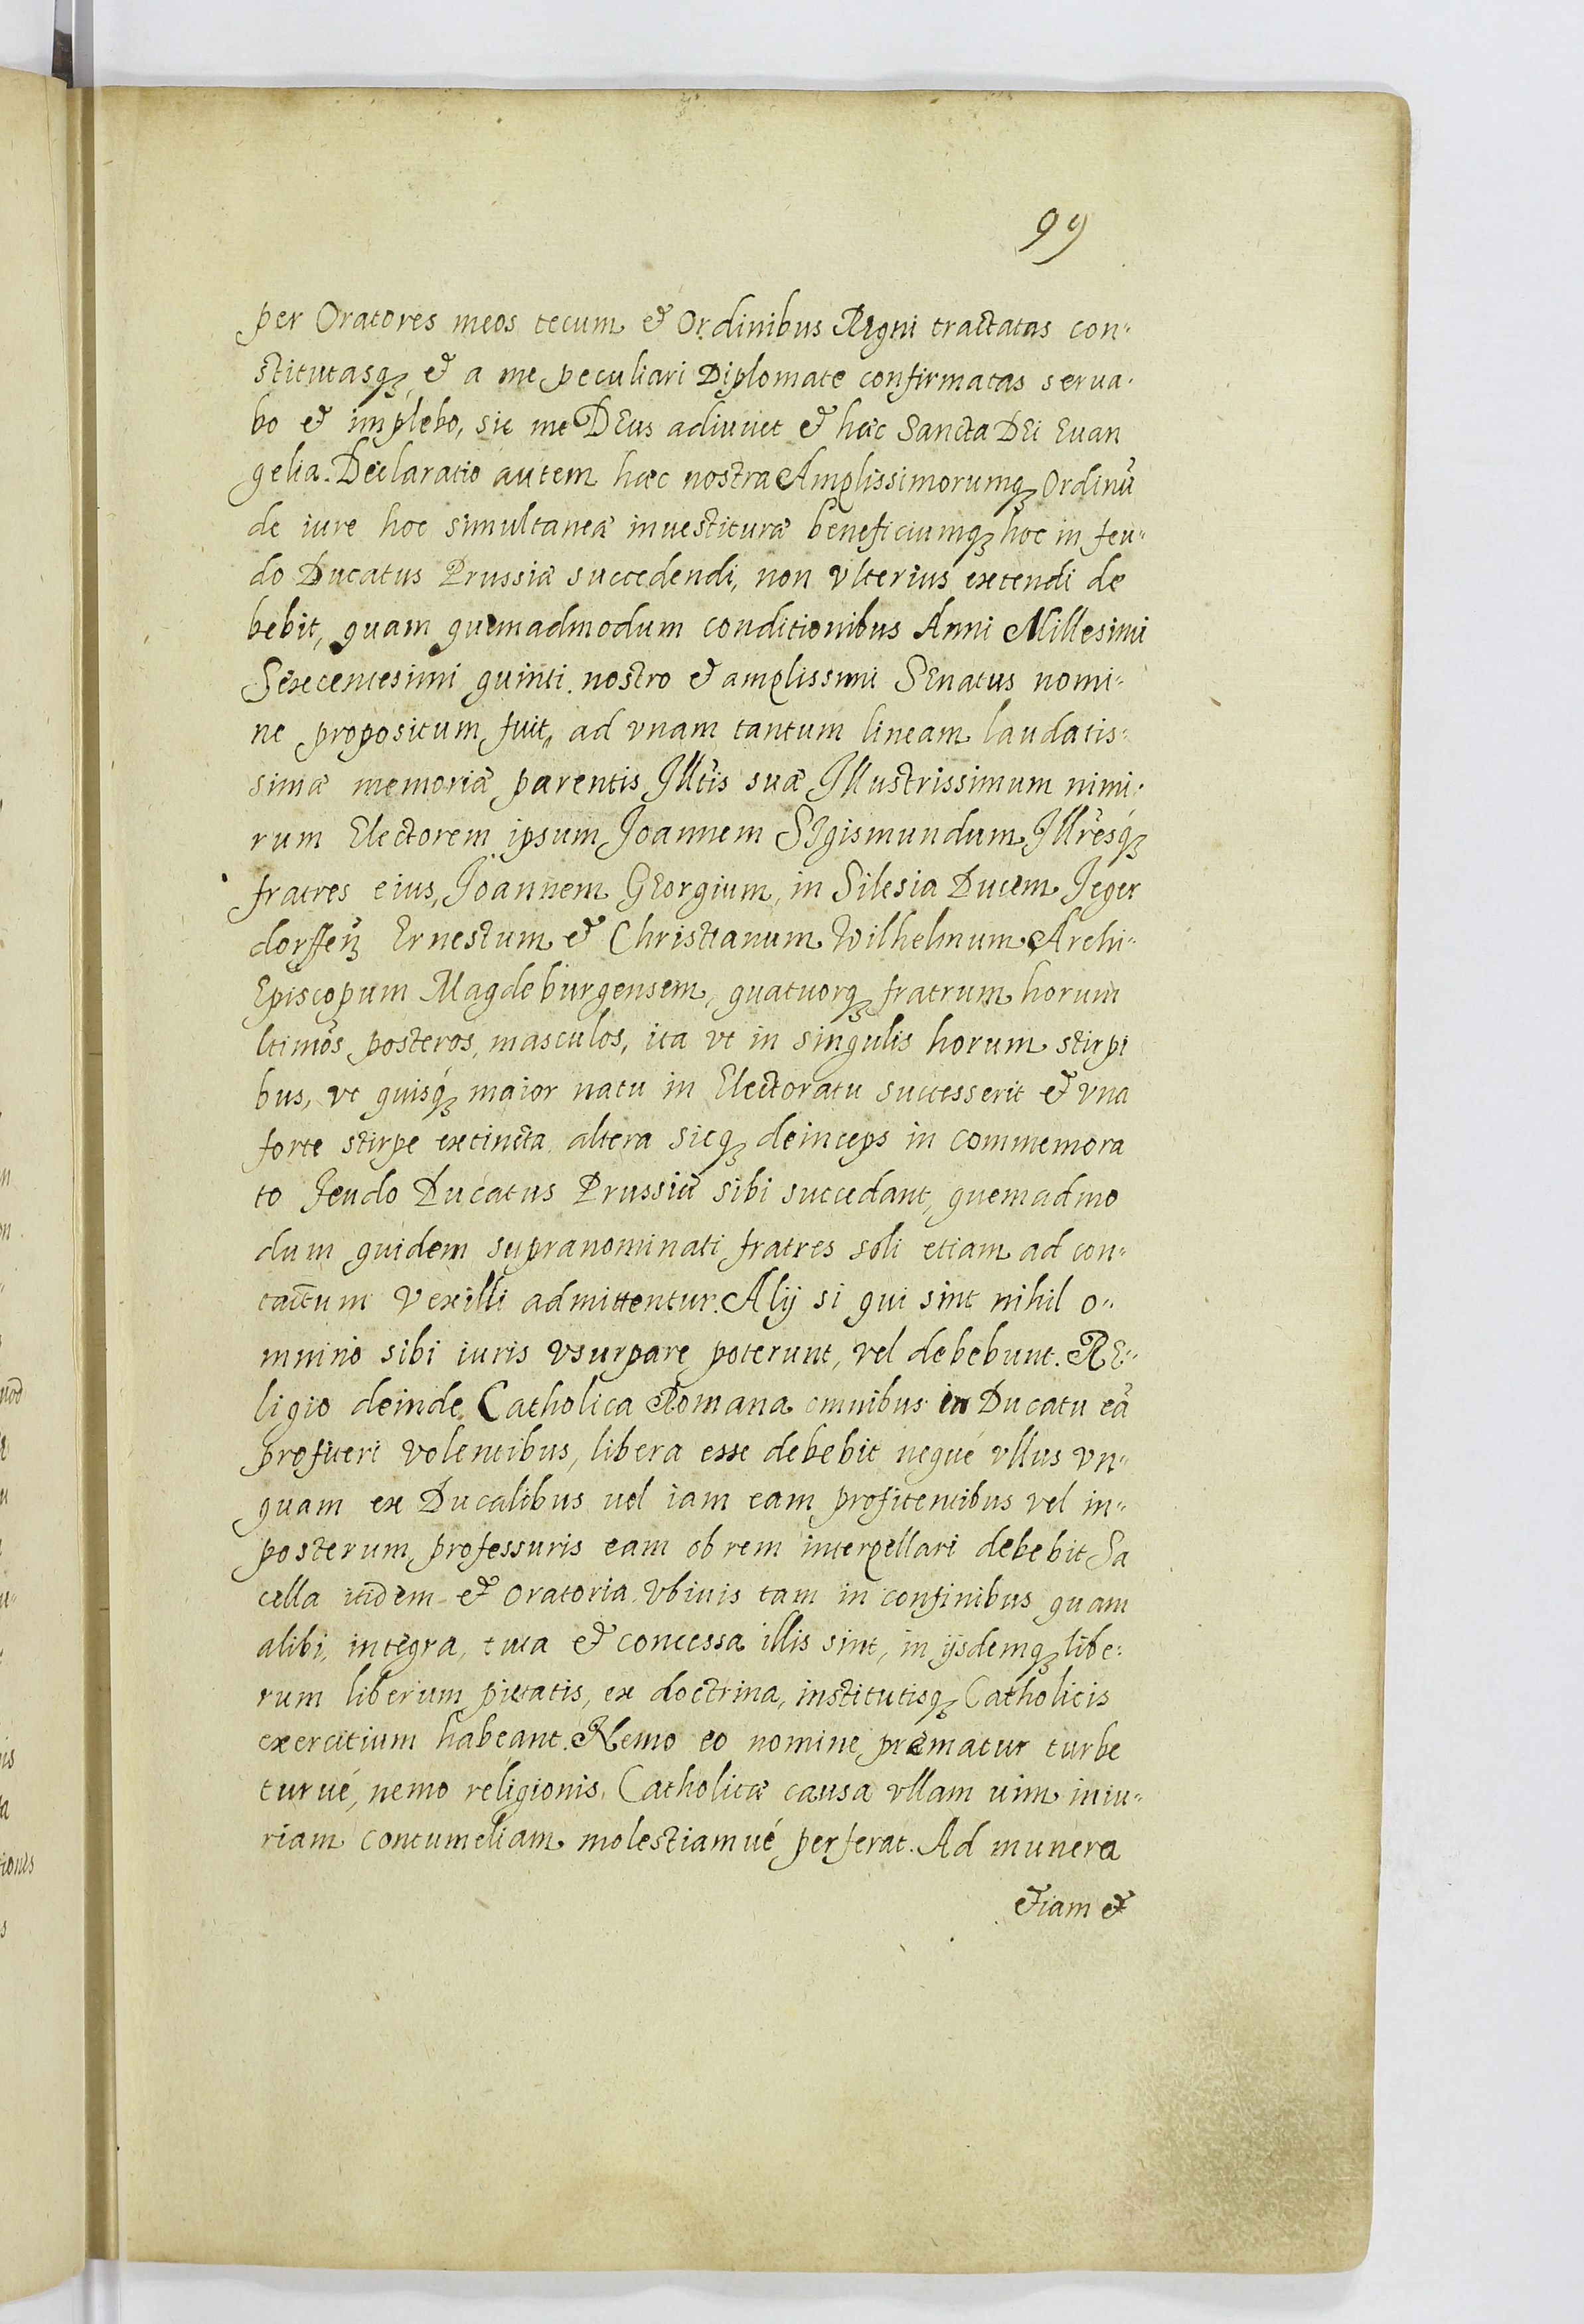 99
per Oratores meos tecum & Ordinibus REgni tractatas con-
stitutasq́ꝫ, & a me peculiari Diplomate confirmatas serua-
bo & implebo, sic me DEus adiuuet & hæc Sancta DEi Euan
gelia. Declaratio autem hæc nostra Amplissimorumqꝫ Ordinū
de iure hoc simultaneæ inuestituræ beneficiumqꝫ hoc in feu-
do Ducatus Prussiæ succedendi, non vlterius extendi de
bebit, quam quemadmodum conditionibus Anni Millesimi
Sexcentesimi quinti nostro & amplissimi SEnatus nomi-
ne propositum fuit, ad vnam tantum lineam laudatis-
simæ memoriæ parentis Illtis suæ Illustrissimum nimi-
rum Electorem ipsum Joannem SIgismundum Illresq́ꝫ
fratres eius, Joannem GEorgium, in Silesia Ducem Jeger
dorffeñ Ernestum & Christianum Wilhelmum Archi-
Episcopum Magdeburgensem, quatuorqꝫ fratrum horum
ltimos posteros, masculos, ita vt in singulis horum stirpi
bus, vt quisq́ꝫ maior natu in Electoratu successerit & vna
forte stirpe extincta altera sicqꝫ deinceps in commemora
to Feudo Ducatus Prussiæ sibi succedant, quemadmo
dum quidem supranominati fratres soli etiam ad con-
tactum Vexilli admittentur. Alij si qui sint nihil o-
mnino sibi iuris vsurpare poterunt, vel debebunt. RE-
ligio deinde Catholica Romana omnibus in Ducatu eā
profiteri volentibus, libera esse debebit nequé vllus vn-
quam ex Ducalibus uel iam eam profitentibus vel in-
posterum professuris eam ob rem interpellari debebit Sa
cella itidem & oratoria vbiuis tam in confinibus quam
alibi, integra, tuta & concessa illis sint, in ijsdemqꝫ libe-
rum liberum pietatis, ex doctrina, institutisqꝫ Catholicis
exercitium habeant. Nemo eo nomine prematur turbe
turué, nemo religionis Catholicæ causa vllam uim iniu-
riam contumeliam molestiamué perferat. Ad munera
etiam &